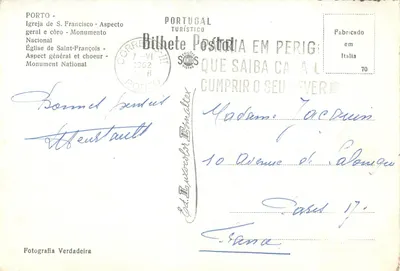 PORTO -
Igreja de S. Francisco - Aspecto
geral e côro - Monumento
Nacional
Église de Saint-François -
Aspect général et choeur -
Monument National
PORTUGAL
TURÍSTICO
Bilhete Postal
Fabricado
em
Italia
70
CORREIOS
PORTO
PÁTRIA EM PERIG
QUE SAIBA CA
CUMPRIR O SEU EVER
Madame Jacquin
10 Avenue de
Paris 17
France
Fotografia Verdadeira